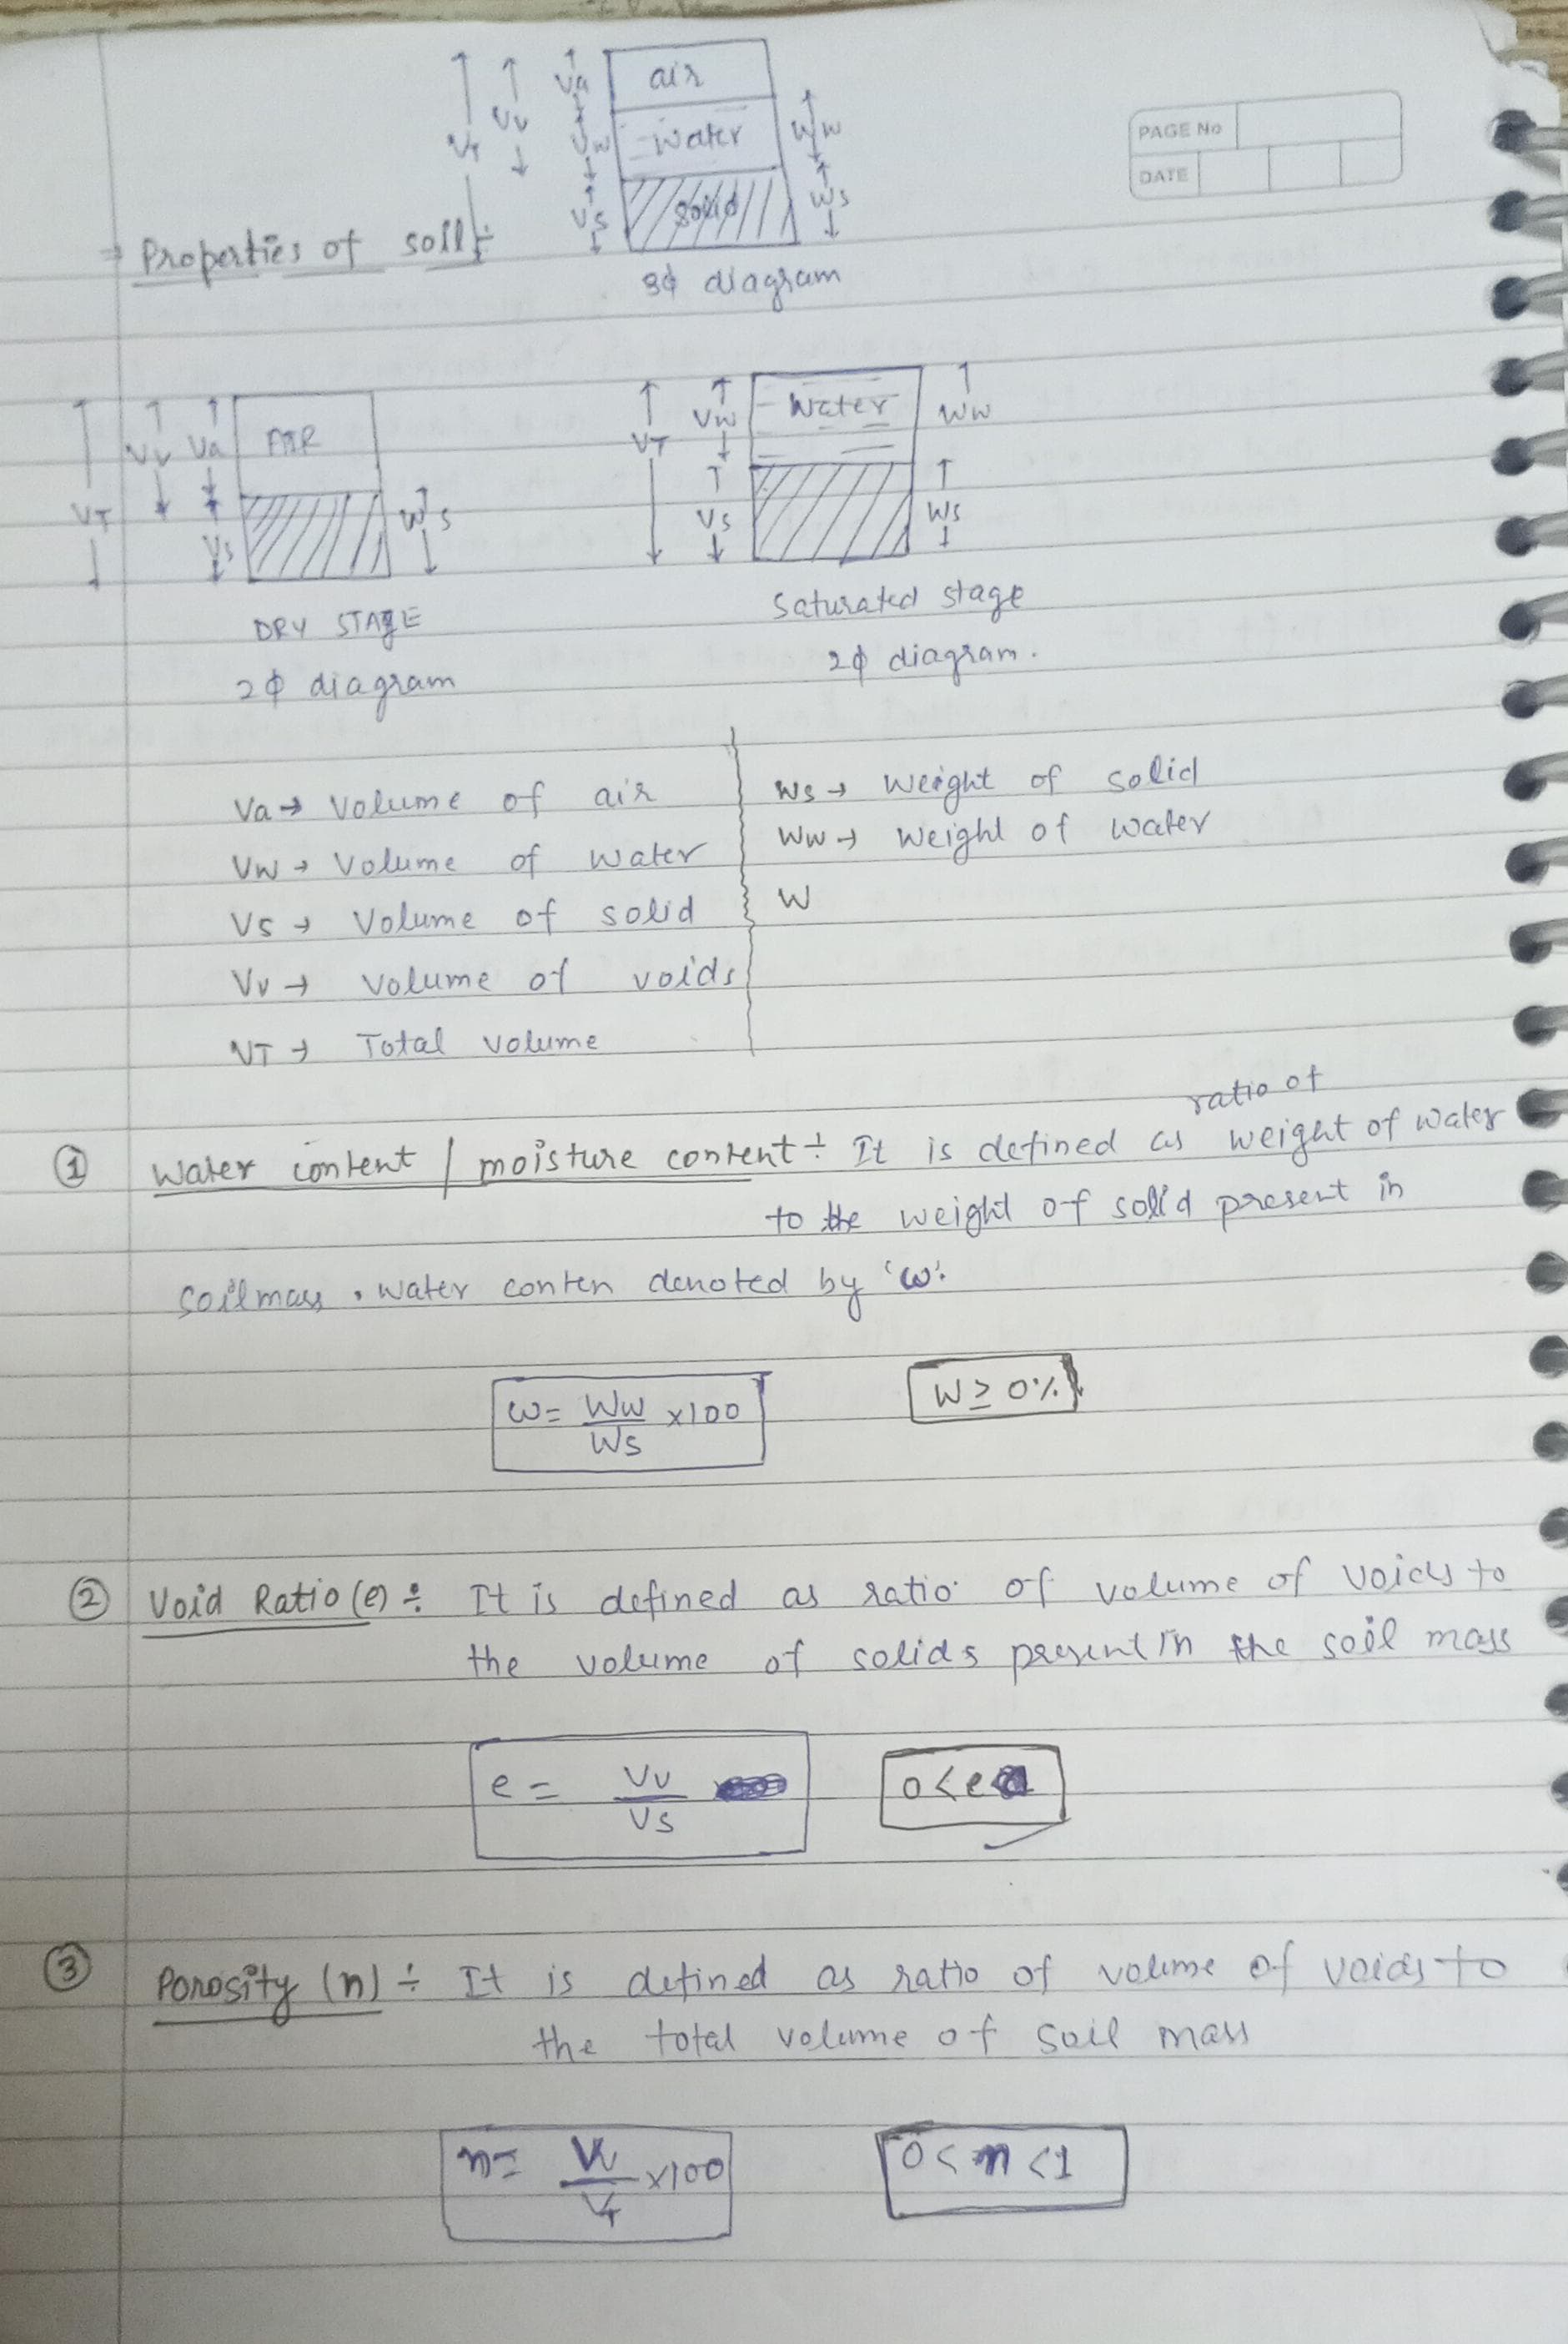 air
Va
Vv
VT
Vw
water
Ww
Vs
solid
Ws
PAGE No
DATE
⇒ Properties of soil÷
3ϕ diagram
VT Vv Va AIR
Vs Ws
VT Vw Water Ww
Vs Ws
DRY STAGE
2ϕ diagram
Saturated stage
2ϕ diagram.
Va → Volume of air
Vw → Volume of water
Vs → Volume of solid
Vv → Volume of voids
VT → Total volume
Ws → Weight of solid
Ww → Weight of water
W
① Water content / moisture content ÷ It is defined as ratio of weight of water
to the weight of solid present in
soil mass . Water conten denoted by 'ω'.
ω = Ww/Ws ×100
W ≥ 0%
② Void Ratio (e) ÷ It is defined as ratio of volume of voids to
the volume of solids present in the soil mass
e = Vv/Vs
0<e
③ Porosity (n) ÷ It is defined as ratio of volume of voids to
the total volume of soil mass
n = Vv/VT ×100
0 < n < 1